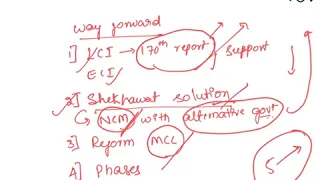 way forward
1] LCI → 170th report → support
ECI
2] Shekhawat solution
↳ NCM with alternative govt
3] Reform MCC
4] Phases
5